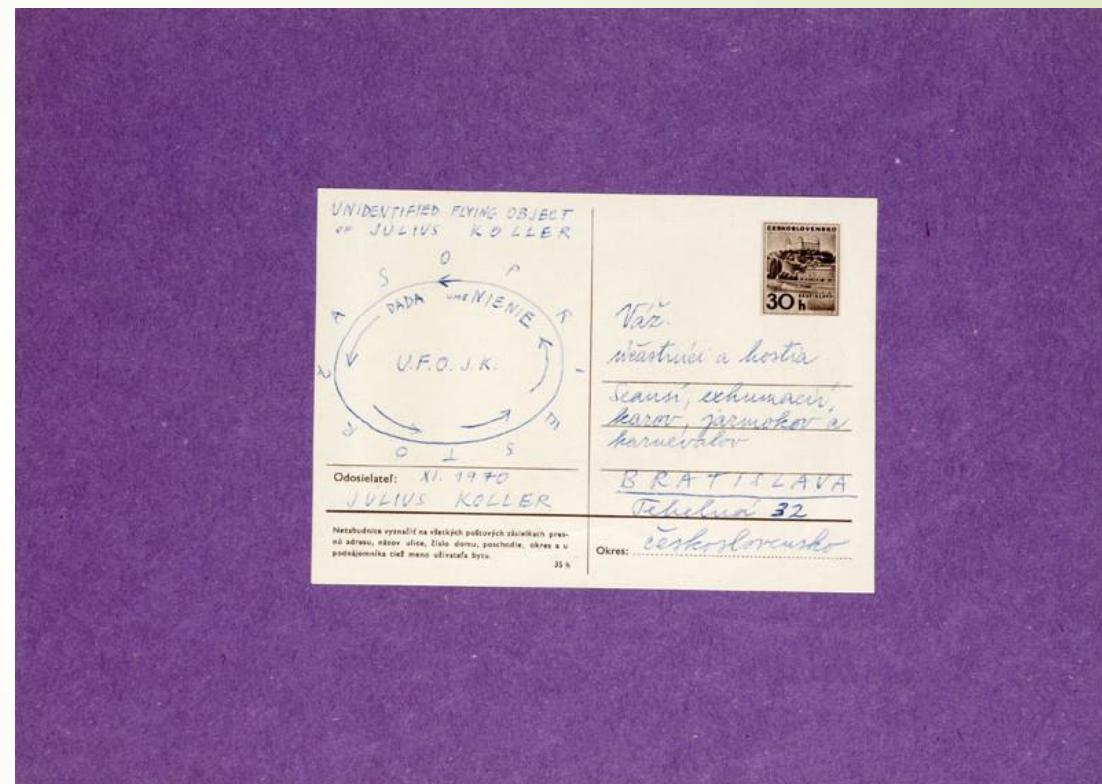 UNIDENTIFIED FLYING OBJECT
OF JÚLIUS KOLLER
ČASOPRIESTOR
DADA UMENIENIE
U.F.O.J.K.
Odosielateľ: XI. 1970
JÚLIUS KOLLER
Nezabudnite vyznačiť na všetkých poštových zásielkach pres-
nú adresu, názov ulice, číslo domu, poschodie, okres a u
podnájomníka tiež meno užívateľa bytu.
35 h
ČESKOSLOVENSKO
BRATISLAVA
30 h
Váž.
účastníci a hostia
Seansí, exhumácií,
karov, jarmokov a
karnevalov
BRATISLAVA
Tehelná 32
Okres: Československo